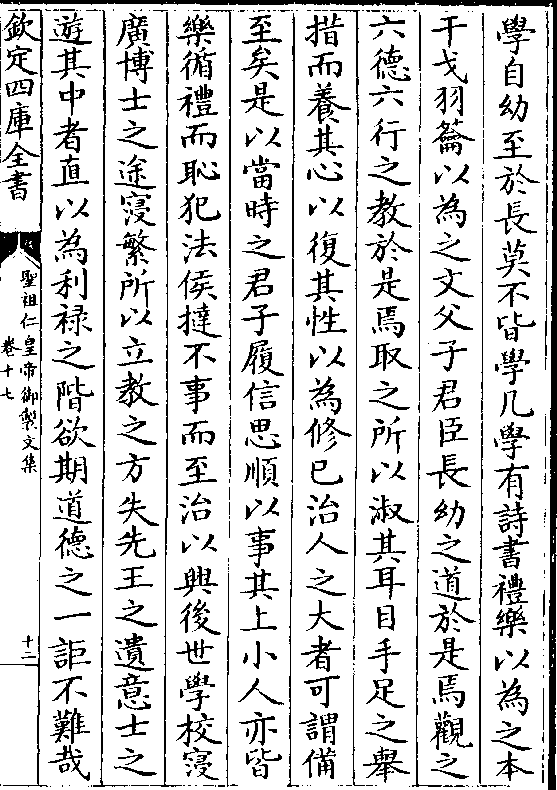 學自幼至於長莫不皆學凡學有詩書禮樂以為之本
干戈羽籥以為之文父子君臣長幼之道於是焉觀之
六德六行之教於是焉取之所以淑其耳目手足之舉
措而養其心以復其性以為修已治人之大者可謂備
至矣是以當時之君子履信思順以事其上小人亦皆
樂循禮而恥犯法侯撻不事而至治以興後世學校寖
廣博士之途寖繁所以立教之方失先王之遺意士之
遊其中者直以為利禄之階欲期道德之一詎不難哉
欽定四庫全書
聖祖仁皇帝御製文集
卷十七
十二